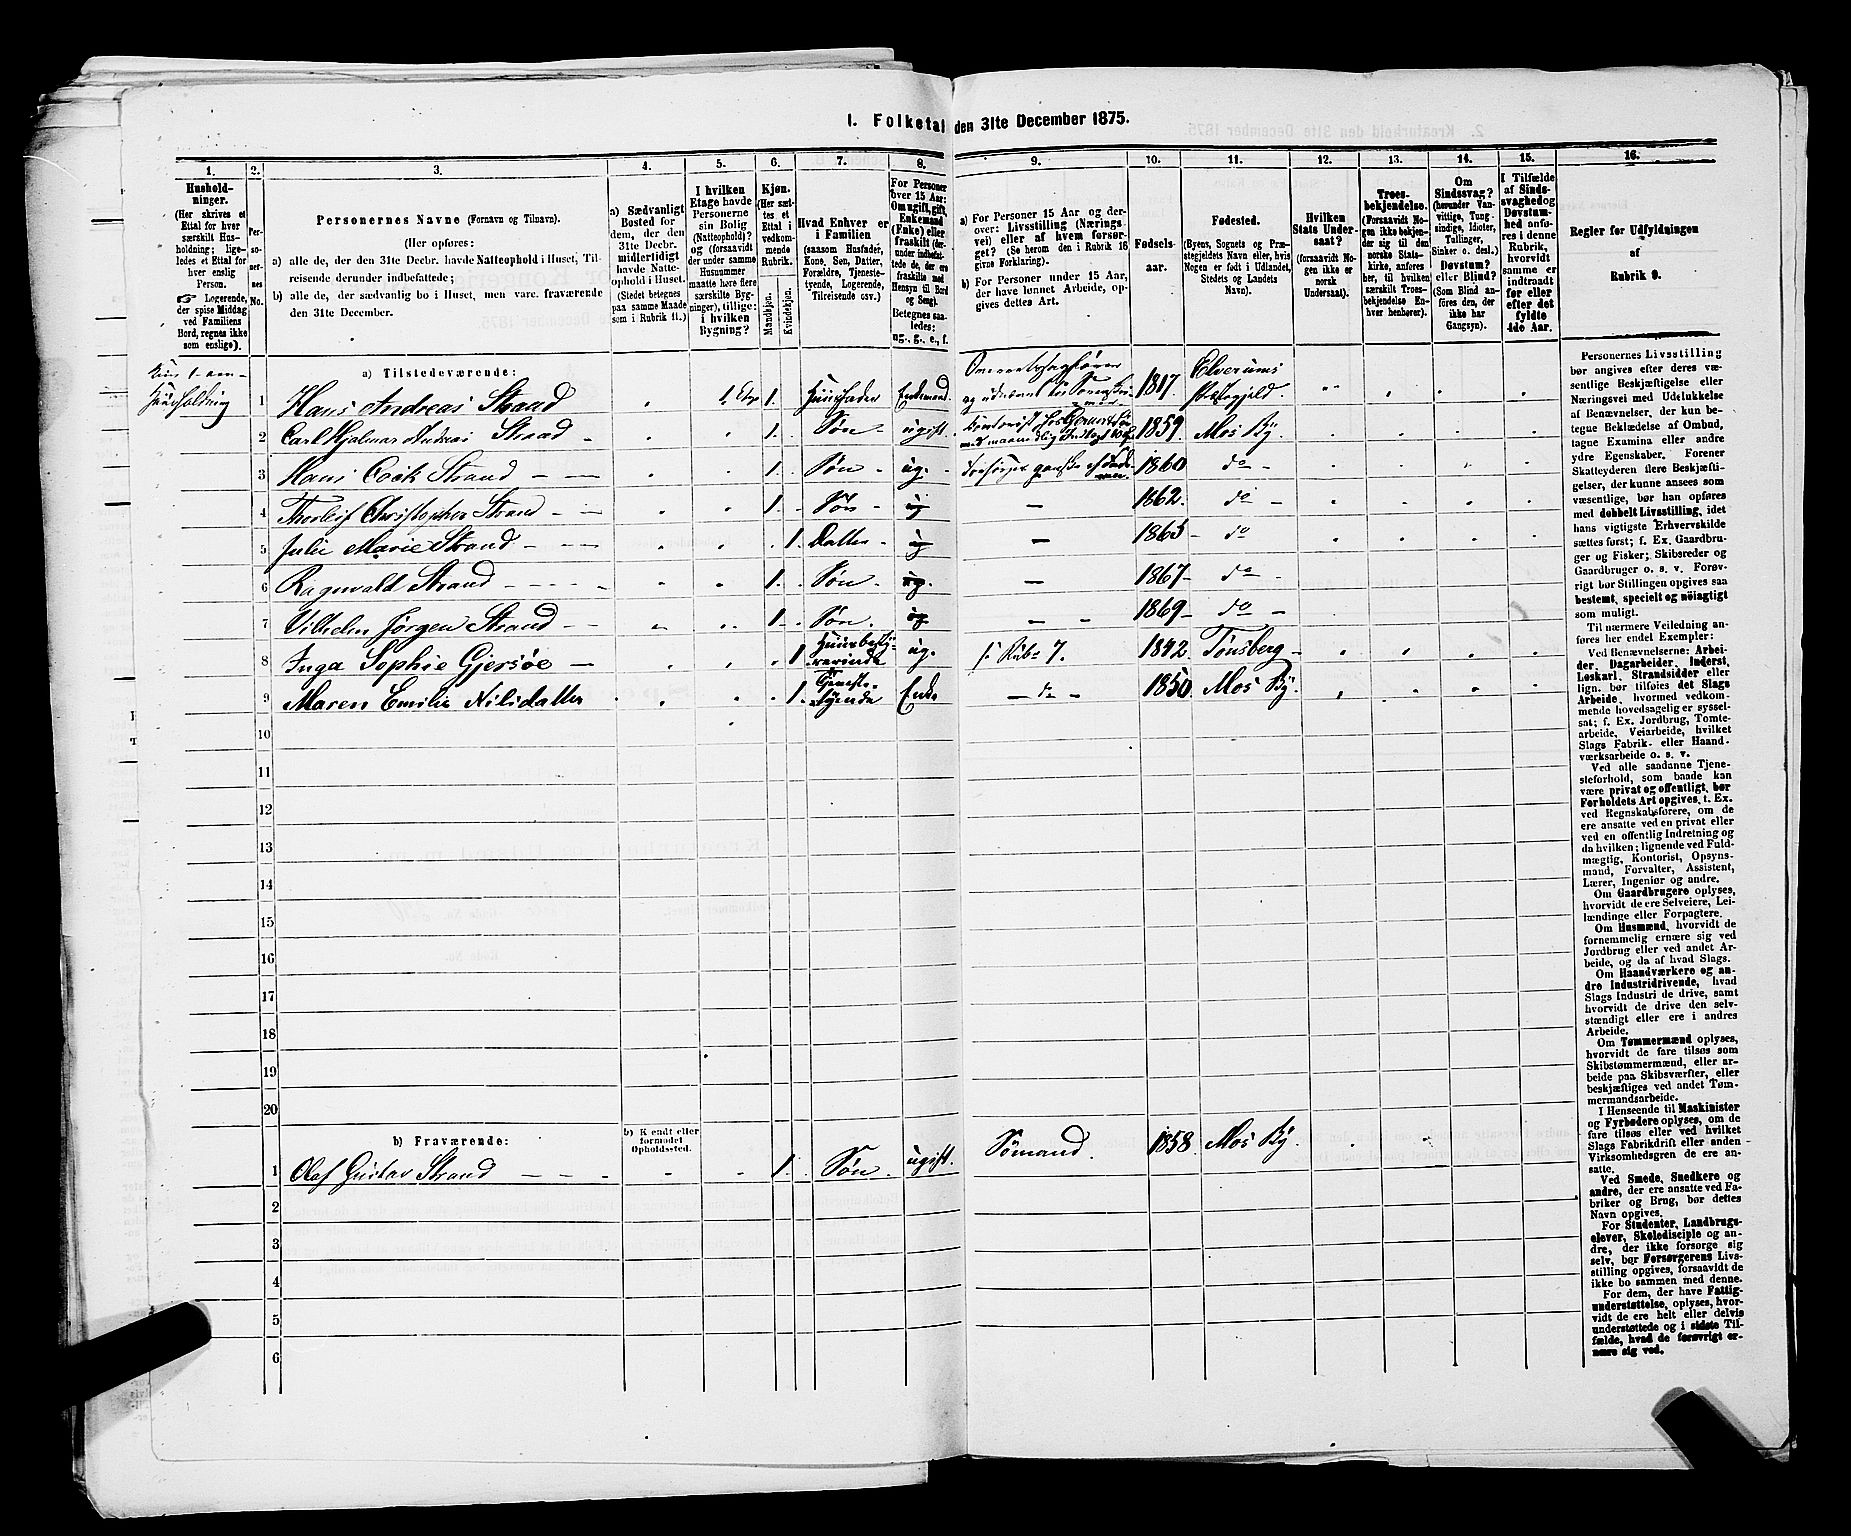 1. Folketal den 31te December 1875.
1. 2. 3. 4. 5. 6. 7. 8. 9. 10. 11. 12. 13. 14. 15. 16.
Hushold-
ninger.
(Her skrives et
Ettal for hver
særskilt Hus-
holdning; lige-
ledes et Ettal for
hver enslig
Person.
☞ Logerende,
der spise Middag
ved Familiens
Bord, regnes ikke
som enslige).
Per-
so-
ner-
nes
No.
Personernes Navne (Fornavn og Tilnavn).
(Her opføres:
a) alle de, der den 31te Decbr. havde Natteophold i Huset, Til-
reisende derunder indbefattede;
b) alle de, der sædvanlig bo i Huset, men vare fraværende
den 31te December.
a) Sædvanligt
Bosted for
dem, der den
31te Decbr.
midlertidigt
havde Natte-
ophold i Huset.
(Stedet betegnes
paa samme Maade
som i Rubrik 11.)
I hvilken
Etage havde
Personerne
sin Bolig
(Natteophold)?
og (forsaavidt
der under samme
Husnummer
maatte høre flere
særskilte Byg-
ninger), tillige:
i hvilken
Bygning?
Kjøn.
(Her sæt-
tes et
Ettal i
vedkom-
mende
Rubrik.
Mandkjøn.
Kvindekjøn.
Hvad Enhver er
i Familien
(saasom Husfader,
Kone, Søn, Datter,
Forældre, Tjeneste-
tyende, Logerende,
Tilreisende osv.)
For Personer
over 15 Aar:
Om ugift, gift,
Enkemand
(Enke) eller
fraskilt (der-
under indbefat-
tede de, der ere
fraskilte med
Hensyn til Bord
og Seng).
Betegnes saa-
ledes:
ug., g., e., f.
a) For Personer 15 Aar og der-
over: Livsstilling (Nærings-
vei) eller af hvem forsør-
get? (Se herom den i Rubrik 16
givne Forklaring).
b) For Personer under 15 Aar,
der have lønnet Arbeide, op-
gives dettes Art.
Fødsels-
aar.
Fødested.
(Byens, Sognets og Præ-
stegjeldets Navn eller, hvis
Nogen er født i Udlandet,
Stedets og Landets
Navn).
Hvilken
Stats Under-
saat?
(forsaavidt No-
gen ikke er
norsk
Undersaat).
Troes-
bekjendelse.
(Forsaavidt No-
gen ikke bekjen-
der sig til den
norske Stats-
kirke, anføres
her, til hvilken
særskilt Troes-
bekjendelse En-
hver henhører).
Om
Sindssvag?
(herunder Van-
vittige, Tung-
sindige, Idioter,
Tullinger,
Sinker o. desl.)
Døvstum?
eller Blind?
(Som Blind an-
føres den, der
ikke har
Gangsyn).
I Tilfælde
af Sinds-
svaghed og
Døvstum-
hed anfø-
res i denne
Rubrik,
hvorvidt
samme er
indtraadt
før eller
efter det
fyldte
4de Aar.
Regler for Udfyldningen
af
Rubrik 9.
a) Tilstedeværende:
Huusholdning
1 Hans Andreas Strand 1. Etg 1. Huusfader Enkemand 1817. Elverums Præstegjeld
2 Carl Hjalmar Andreas Strand 1. Søn ugift. 1859. Mos By
3 Hans Cock Strand 1. Søn ug. Forsørges ganske af Faderen 1860 do
4 Thorleif Christopher Strand 1. Søn ug 1862. do
5 Julie Marie Strand 1. Datter ug 1865 do
6 Ragnvald Strand 1. Søn ug. 1867 do
7 Vilhelm Jørgen Strand 1. Søn. ug 1869 do
8 Inga Sophie Gjersøe 1. Huusbestyrerinde ug. s. Rub: 7. 1842 Tønsberg
9 Maren Emilie Nilsdatter 1. Tjenestetyende Enke do 1850 Mos By.
10
11
12
13
14
15
16
17
18
19
20
b) Fraværende:
b) Kjendt eller
formodet
Opholdssted.
1 Olaf Gustav Strand 1. Søn ugift. Sømand. 1858. Mos By.
2
3
4
5
6
Personernes Livsstilling
bør angives efter deres væ-
sentlige Beskjæftigelse eller
Næringsvei med Udelukkelse
af Benævnelser, der kun be-
tegne Beklædelse af Ombud,
tagne Examina eller andre
ydre Egenskaber. Forener
Skatteyderen flere Beskjæfti-
gelser, der kunne ansees som
væsentlige, bør han opføres
med dobbelt Livsstilling, idet
hans vigtigste Erhvervskilde
sættes først; f. Ex. Gaardbru-
ger og Fisker; Skibsreder og
Gaardbruger o. s. v. Forøv-
rigt bør Stillingen opgives saa
bestemt, specielt og nøiagtigt
som muligt.
Til nærmere Veiledning an-
føres her endel Exempler:
Ved Benævnelserne: Arbei-
der, Dagarbeider, Inderst,
Løskarl, Strandsidder eller
lign. bør tilføies det Slags
Arbeide, hvormed vedkom-
mende hovedsagelig er syssel-
sat; f. Ex. Jordbrug, Tomte-
arbeide, Veiarbeide, hvilket
Slags Fabrik- eller Haand-
værksarbeide o. s. v.
Ved alle saadanne Tjene-
steforhold, som baade kan
være privat og offentligt, bør
Forholdets Art opgives, f. Ex.
ved Regnskabsførere, om de
ere ansatte ved en privat eller
ved en offentlig Indretning og
da hvilken; lignende ved Fuld-
mægtig, Kontorist, Opsyns-
mand, Forvalter, Assistent,
Lærer, Ingeniør og andre.
Om Gaardbrugere oplyses,
hvorvidt de ere Selveiere, Lei-
lændinge eller Forpagtere.
Om Husmænd, hvorvidt de
fornemmelig ernære sig ved
Jordbrug eller ved andet Ar-
beide, og da af hvad Slags.
Om Haandværkere og an-
dre Industridrivende, hvad
Slags Industri de drive, samt
hvorvidt de drive den selv-
stændigt eller ere i andres
Arbeide.
Om Tømmermænd oplyses,
hvorvidt de fare tilsøs som
Skibstømmermænd, eller ar-
beide paa Skibsværfter, eller
beskjæftiges ved andet Tøm-
mermandsarbeide.
I Henseende til Maskinister
og Fyrbødere oplyses, om de
fare tilsøs eller ved hvilket
Slags Fabrikdrift eller anden
Virksomhedsgren de ere an-
satte.
Ved Smede, Snedkere og
andre, der ere ansatte ved Fa-
briker og Brug, bør dettes
Navn opgives.
For Studenter, Landbrugs-
elever, Skoledisciple og an-
dre, der ikke forsørge sig
selv, bør Forsørgerens Livs-
stilling opgives, forsaavidt de
ikke bo sammen med denne.
For dem, der have Fattig-
understøttelse, oplyses, hvor-
vidt de ere helt eller delvis
understøttede og i sidste Til-
fælde, hvad de forøvrigt er-
nære sig ved.